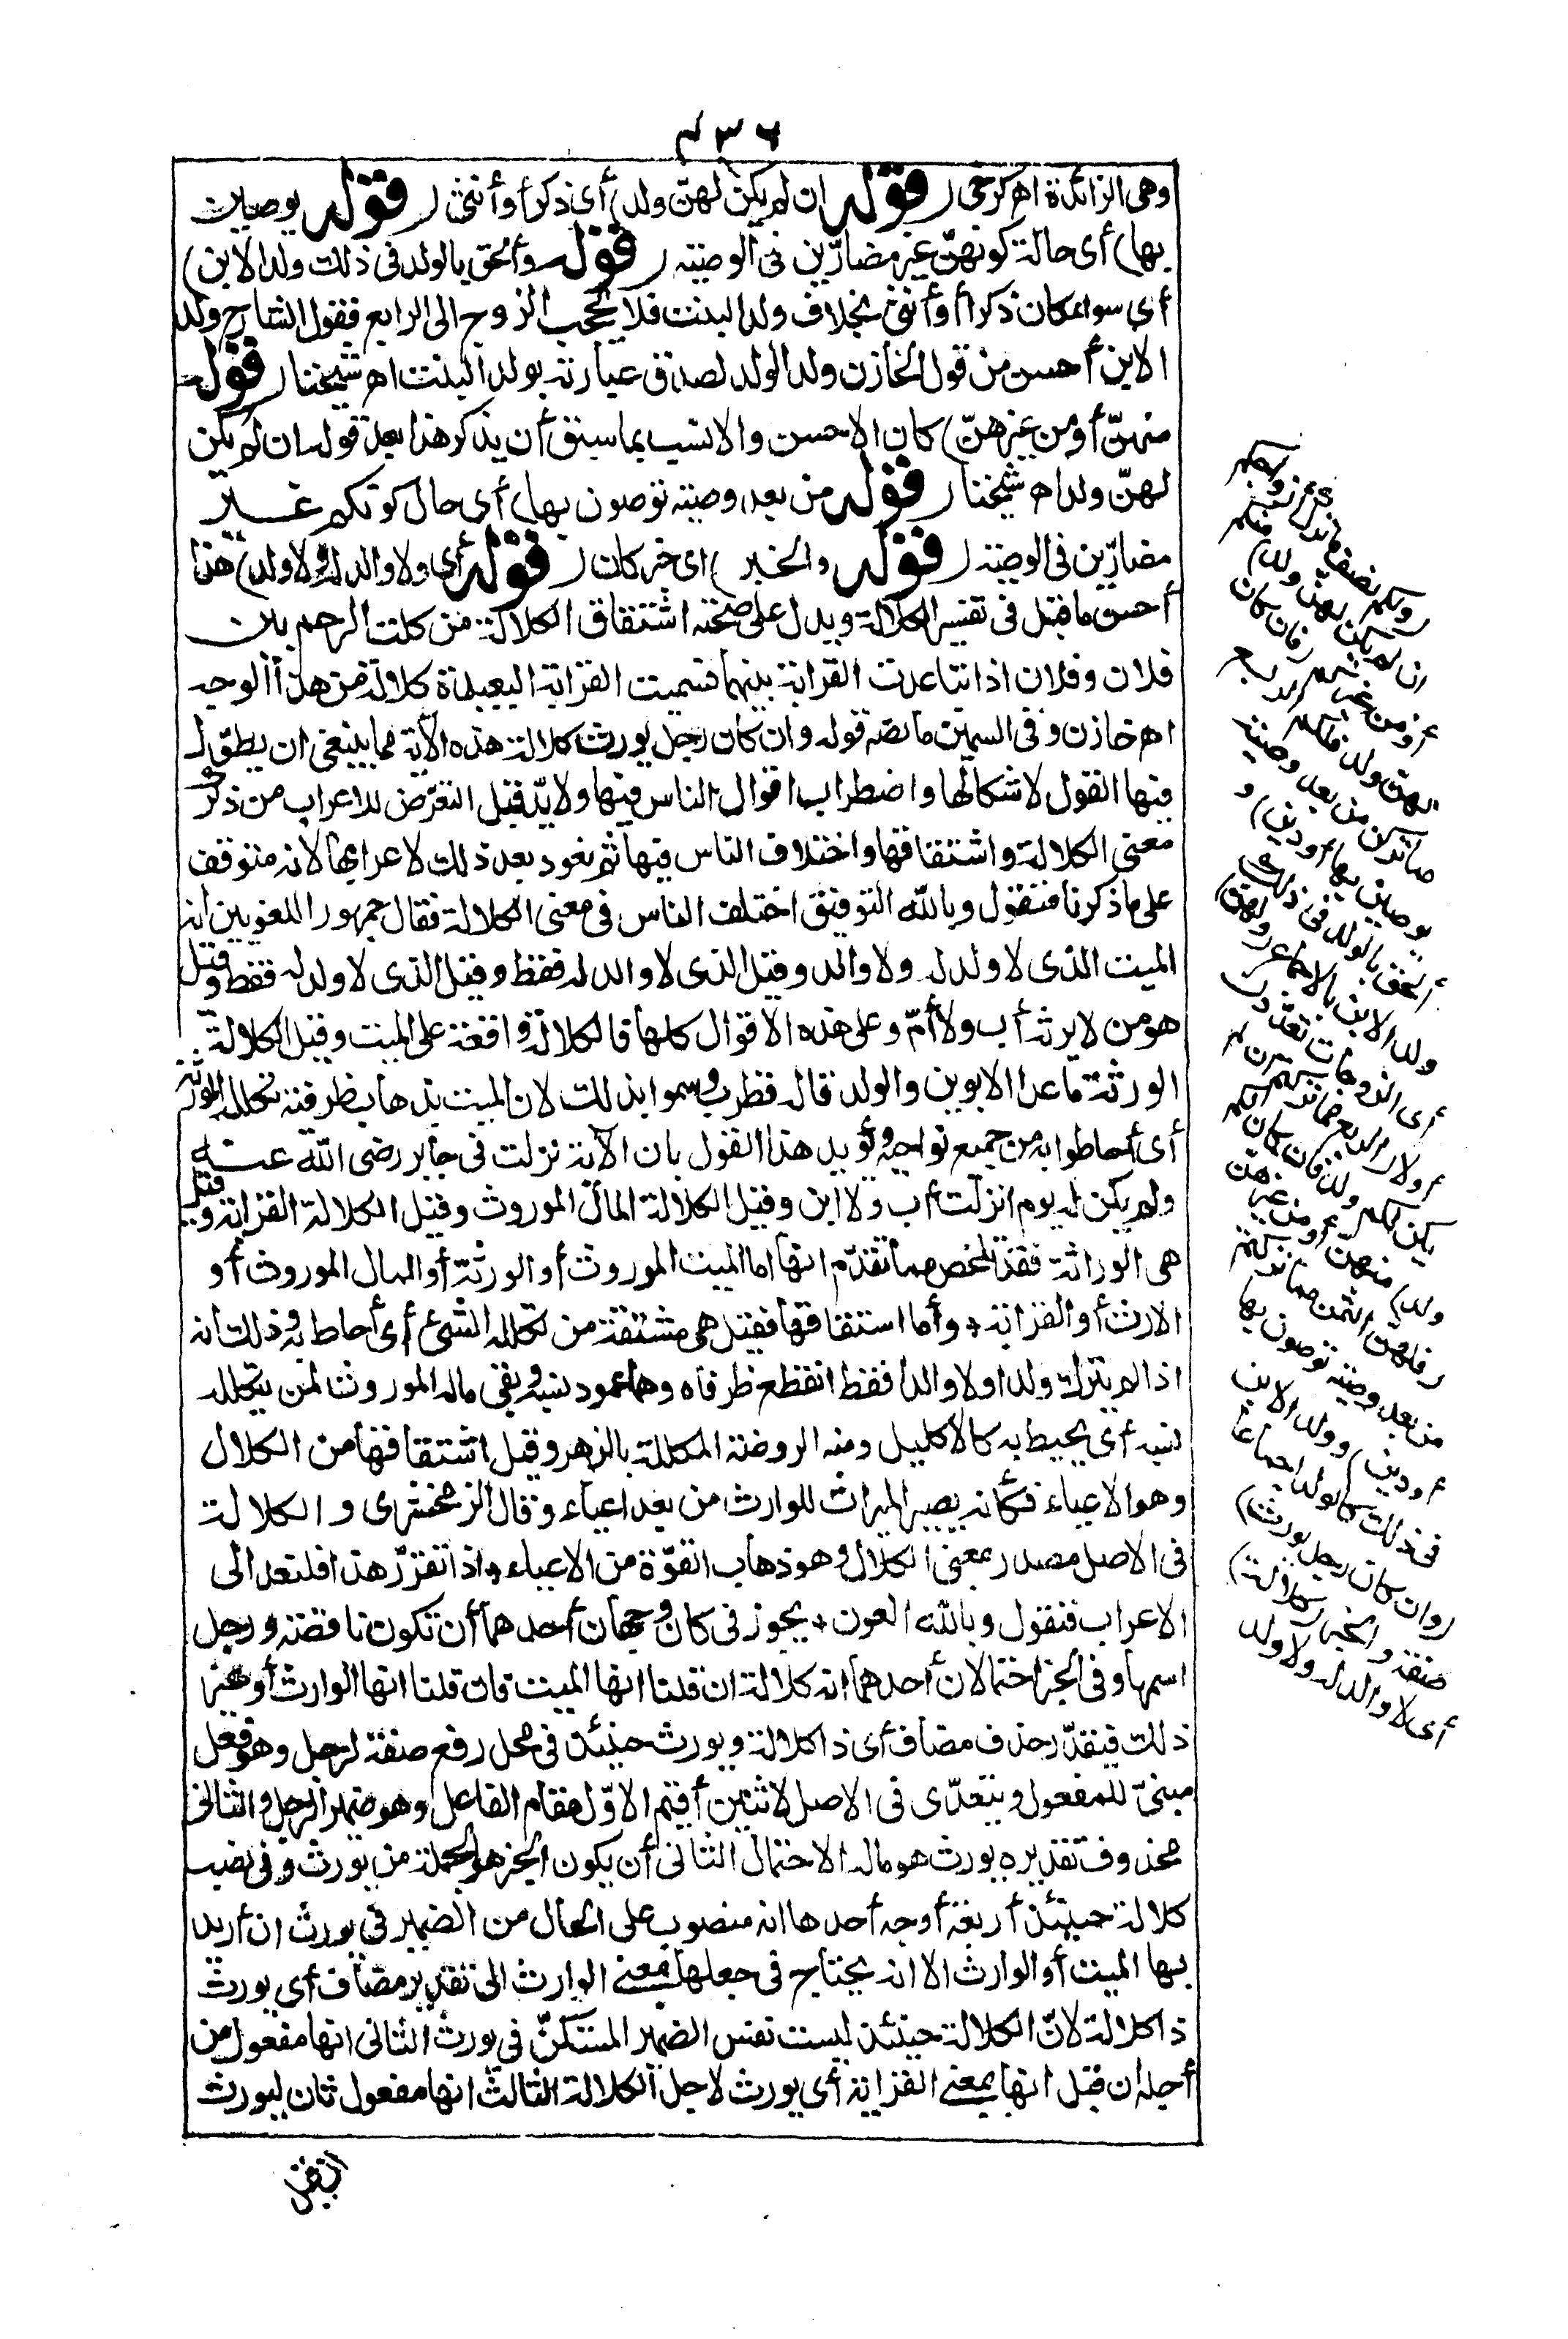 ٤٣٦
وهى الزائدة اهـ كرخى (قوله ان لم يكن لهنّ ولد) أى ذكرا أو أنثى (قوله يوصين
بها) أى حالة كونهنّ غير مضارّين فى الوصية (قوله وألحق بالولد فى ذلك ولد الابن)
أى سواء كان ذكرا أو أنثى بخلاف ولد البنت فلا يحجب الزوج الى الرابع فقول الشارح ولد
الابن أحسن من قول الخازن ولد الولد لصدق عبارته بولد البنت اهـ شيخنا (قوله
منهنّ أو من غيرهنّ) كان الاحسن والانسب بما سبق أن يذكر هذا بعد قوله ان لم يكن
لهنّ ولد اهـ شيخنا (قوله من بعد وصية توصون بها) أى حال كونكم غير
مضارّين فى الوصية (قوله والخبر) اى خبر كان (قوله أى لا والد له ولا ولد) هذا
أحسن ما قيل فى تفسير الكلالة ويدل على صحته اشتقاق الكلالة من كلت الرحم بين
فلان وفلان اذا تباعدت القرابة بينهما فسميت القرابة البعيدة كلالة من هذا الوجه
اهـ خازن وفى السمين ما نصه قوله وان كان رجل يورث كلالة هذه الآية مما ينبغى ان يطوّل
فيها القول لاشكالها واضطراب اقوال الناس فيها ولا بدّ قبل التعرّض للاعراب من ذكر
معنى الكلالة واشتقاقها واختلاف الناس فيها ثم نعود بعد ذلك لاعرابها لانه متوقف
على ما ذكرنا فنقول وبالله التوفيق اختلف الناس فى معنى الكلالة فقال جمهور اللغويين انه
الميت الذى لا ولد له ولا والد وقيل الذى لا والد له فقط وقيل الذى لا ولد له فقط وقيل
هو من لا يرثه أب ولا أمّ وعلى هذه الاقوال كلها فالكلالة واقعة على الميت وقيل الكلالة
الورثة ما عدا الابوين والولد قاله قطرب وسموا بذلك لان الميت بذهاب طرفيه تكلله الورثة
أى أحاطوا به من جميع نواحيه ويؤيد هذا القول بان الآية نزلت فى جابر رضى الله عنه
ولم يكن له يوم انزلت أب ولا ابن وقيل الكلالة المال الموروث وقيل الكلالة القرابة وقيل
هى الوراثة فقد تلخص مما تقدّم انها اما الميت الموروث أو الورثة أو المال الموروث أو
الارث أو القرابة وأما اشتقاقها فقيل هى مشتقة من تكلله الشئ أى أحاط به وذلك انه
اذا لم يترك ولدا ولا والدا فقط انقطع طرفاه وهما عمود نسبه وبقى ماله الموروث لمن يتكلله
نسبه أى يحيط به كالاكليل ومنه الروضة المكللة بالزهر وقيل اشتقاقها من الكلال
وهو الاعياء فكأنه يصير الميراث للوارث من بعد اعياء وقال الزمخشرى والكلالة
فى الاصل مصدر بمعنى الكلال وهو ذهاب القوّة من الاعياء واذا تقرّر هذا فلنعد الى
الاعراب فنقول وبالله العون يجوز فى كان وجهان أحدهما أن تكون ناقصة ورجل
اسمها وفى الخبر احتمالان أحدهما انه كلالة ان قلنا انها الميت فان قلنا انها الوارث أو غير
ذلك فيقدّر حذف مضاف أى ذا كلالة ويورث حينئذ فى محل رفع صفة لرجل وهو فعل
مبنىّ للمفعول ويتعدّى فى الاصل لاثنين أقيم الاوّل مقام الفاعل وهو ضمير الرجل والثانى
محذوف تقديره يورث هو ماله الاحتمال الثانى أن يكون الخبر هو الجملة من يورث وفى نصب
كلالة حينئذ أربعة أوجه أحدها انه منصوب على الحال من الضمير فى يورث ان أريد
بها الميت أو الوارث الا انه يحتاج فى جعلها بمعنى الوارث الى تقدير مضاف أى يورث
ذا كلالة لانّ الكلالة حينئذ ليست نفس الضمير المستكنّ فى يورث الثانى انها مفعول من
أجله ان قيل انها بمعنى القرابة أى يورث لاجل الكلالة الثالث انها مفعول ثان ليورث
(ولكم نصف ما ترك أزواجكم
ان لم يكن لهنّ ولد) منكم
أو من غيركم (فان كان
لهنّ ولد فلكم الربع
مما تركن من بعد وصية
يوصين بها أو دين) و
ألحق بالولد فى ذلك
ولد الابن بالاجماع (ولهنّ)
أى الزوجات تعدّدن
أو لا (الربع مما تركتم ان لم
يكن لكم ولد فان كان لكم
ولد) منهنّ أو من غيرهنّ
(فلهنّ الثمن مما تركتم
من بعد وصية توصون بها
أو دين) وولد الابن
فى ذلك كالولد اجماعا
(وان كان رجل يورث)
صفة والخبر (كلالة)
أى لا والد له ولا ولد